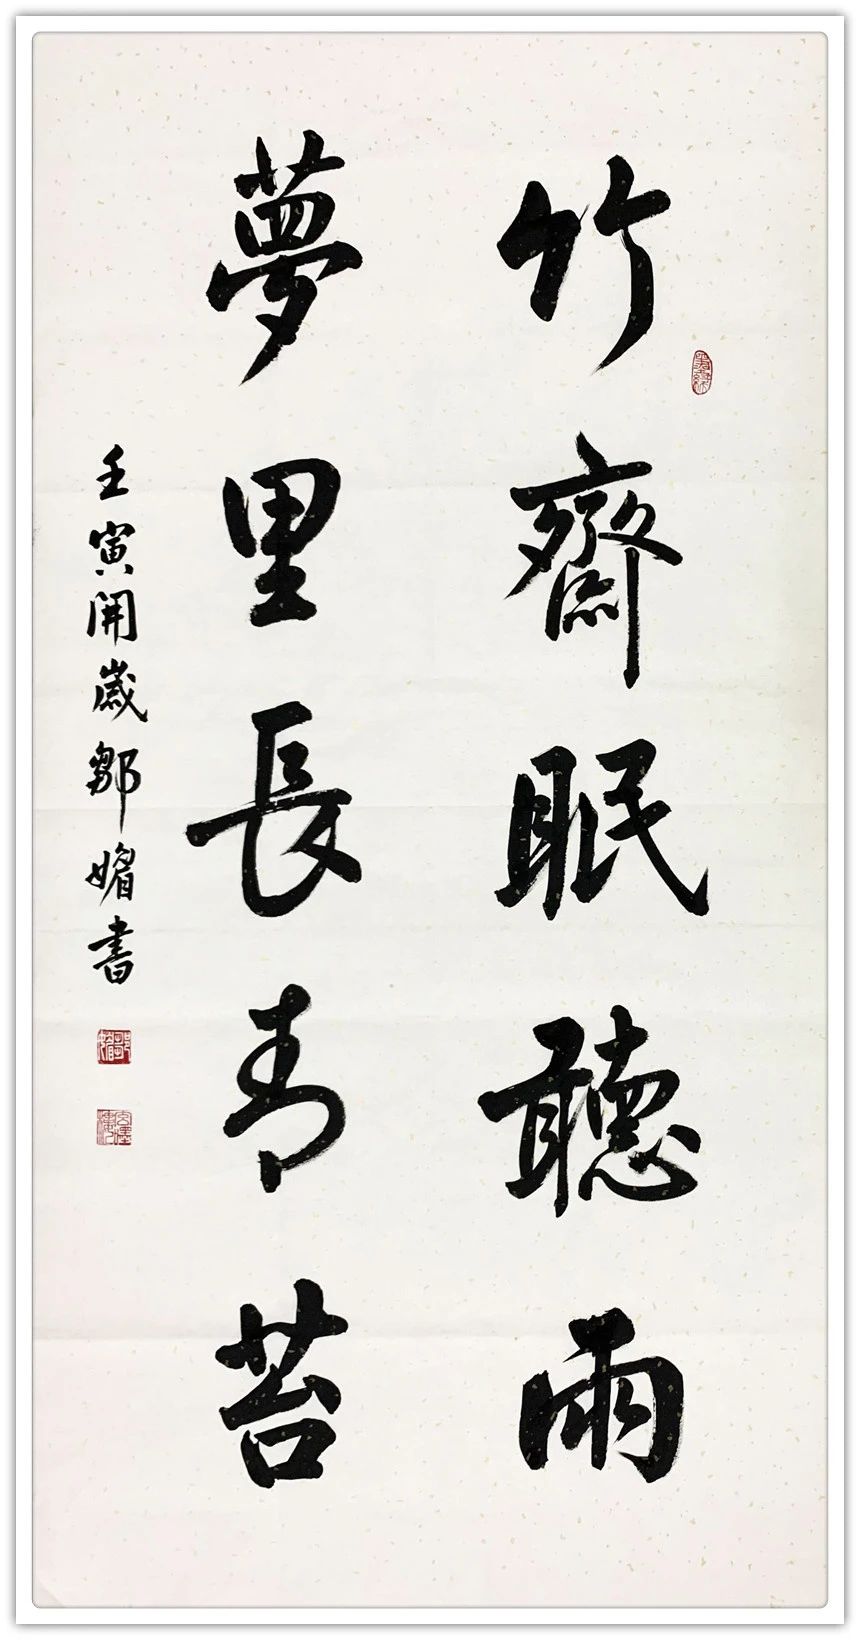 竹齋眠聽雨
夢里長青苔
壬寅開歲鄒媚書